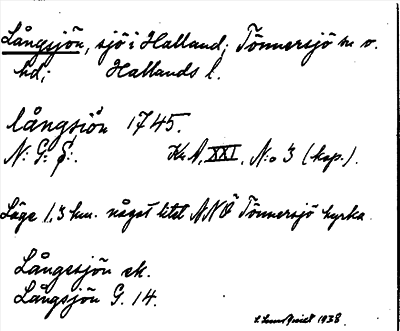 Långsjön, sjö i Halland; Tönnersjö sn o.
hd; Hallands l.
långsiön 1745.
N: G: S:. KrA, XXI, N:o 3 (kop.).
Läge 1,3 km. något litet NNÖ Tönnersjö kyrka.
Långsjön ek.
Långsjön G. 14.
1938.